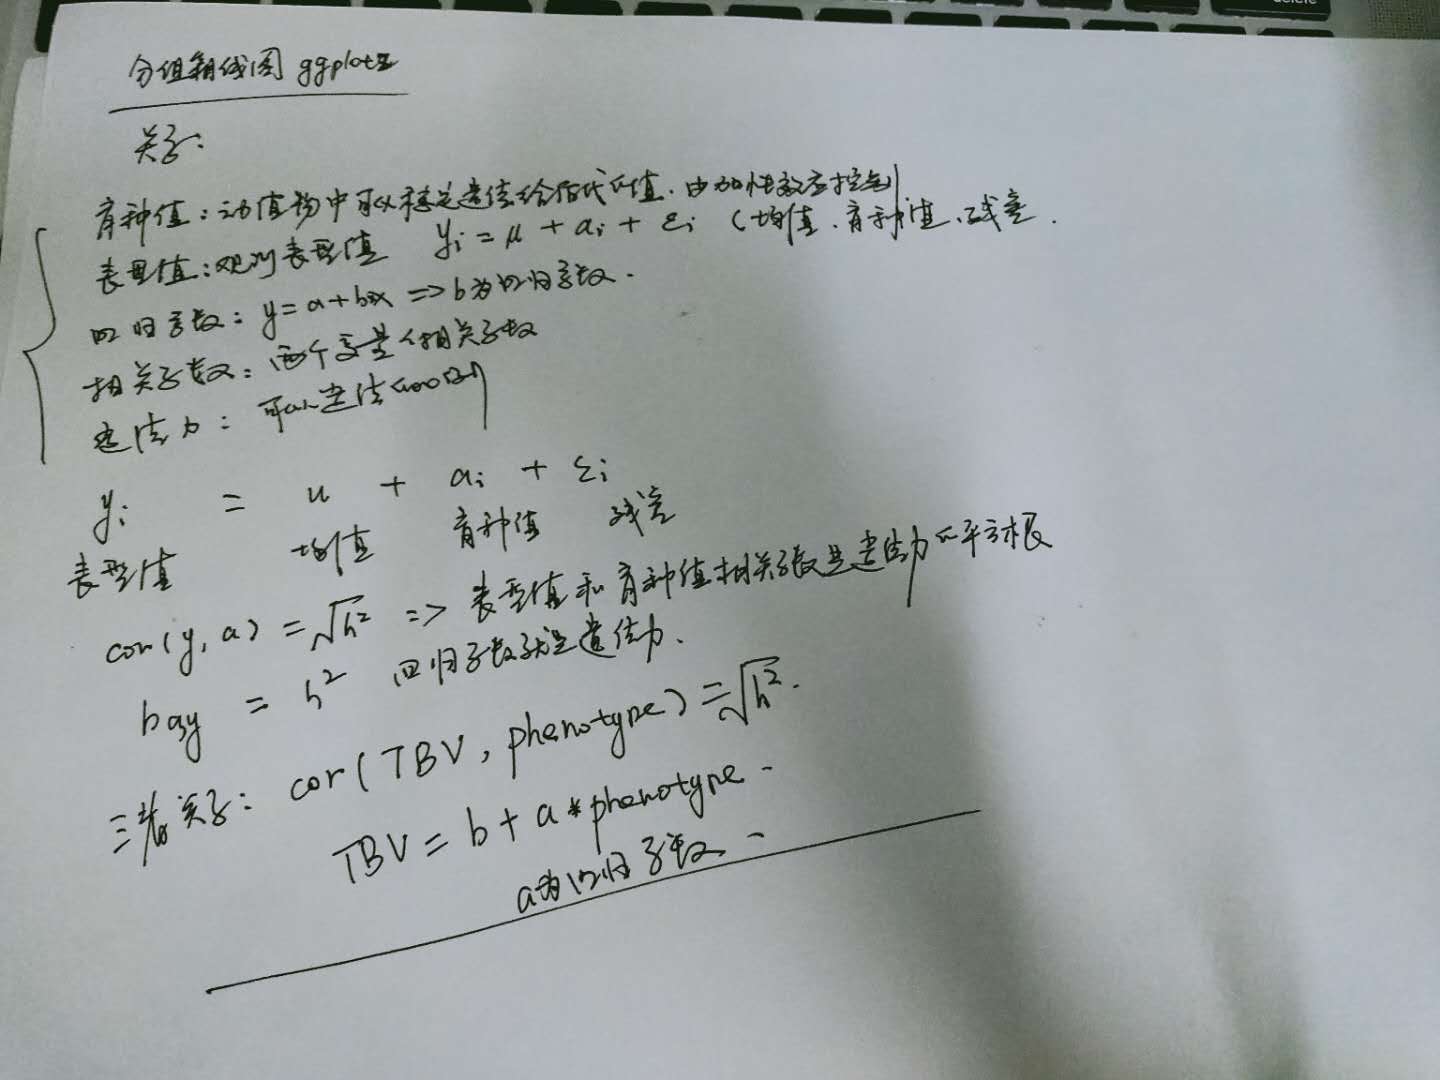 delete
分组箱线图 ggplot2
关系:
育种值: 动植物中可以稳定遗传给后代的值. 由加性效应控制
表型值: 观测表型值 yi = μ + ai + εi (均值. 育种值. 残差.
回归系数: y = a + bx => b为回归系数.
相关系数: 两个变量的相关系数
遗传力: 可以遗传
yi = u + ai + εi
表型值 均值 育种值 残差
cor(y, a) = √h² => 表型值和育种值相关系数是遗传力的平方根
bay = h² 回归系数就是遗传力.
三者关系: cor(TBV, phenotype) = √h².
TBV = b + a * phenotype.
a为回归系数.